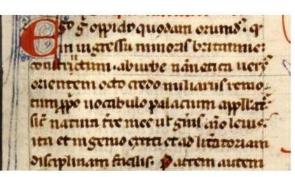 Ego g̅ oppido quodam oriund⁹ q̅
in ingressu minoris britannie
constructum ab urbe nannetica uers⁹
orientem octo credo miliariis remo
tum ꝓpo uocabulo palacium appllat᷑
sic̅ natura tr̅e mee ut gn̅is aīo leuis
ita et ingenio extiti et ad litt̅atoriam
disciplinam facilis. Patrem autem